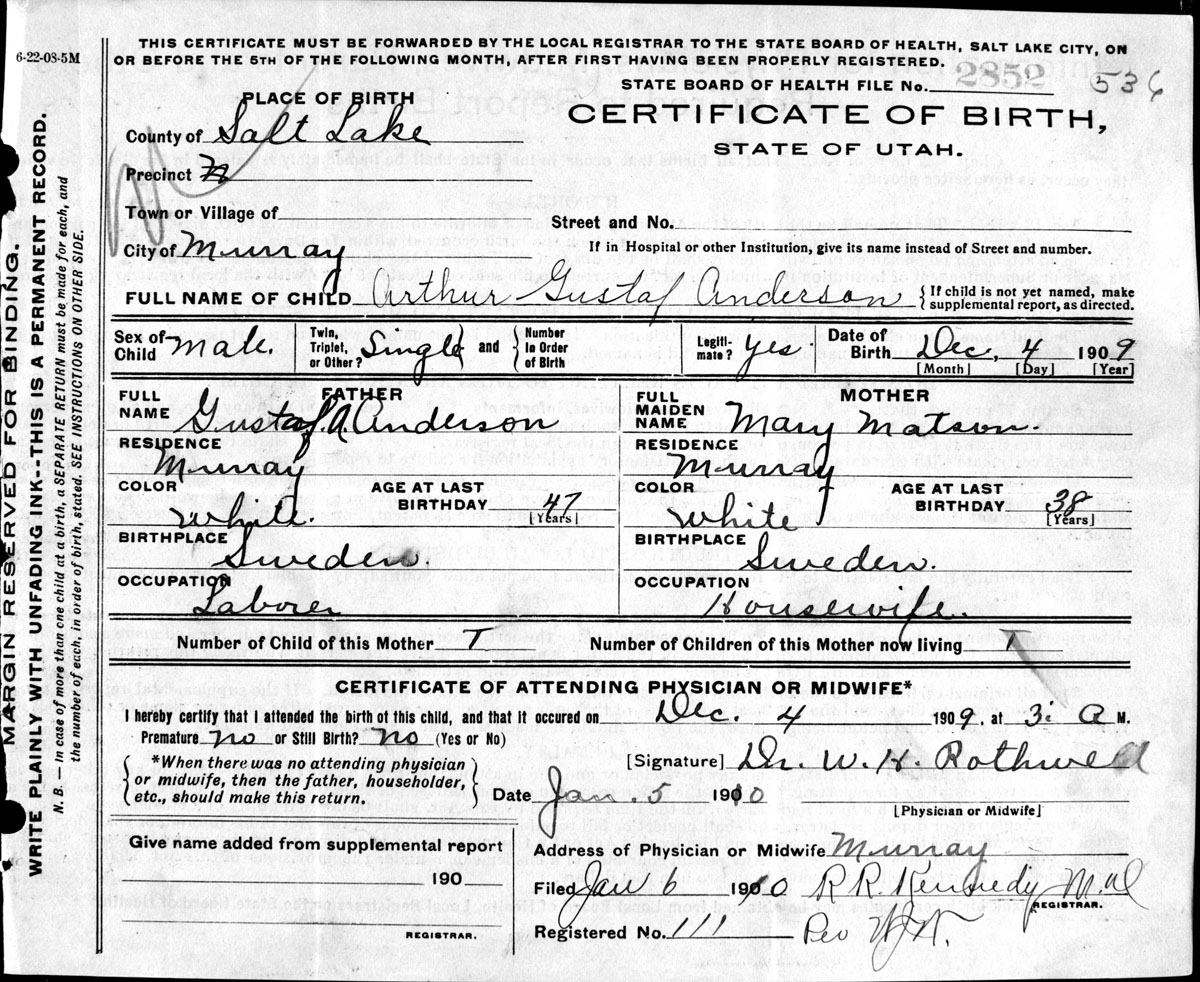 6-22-08-5M
THIS CERTIFICATE MUST BE FORWARDED BY THE LOCAL REGISTRAR TO THE STATE BOARD OF HEALTH, SALT LAKE CITY, ON
OR BEFORE THE 5TH OF THE FOLLOWING MONTH, AFTER FIRST HAVING BEEN PROPERLY REGISTERED.
STATE BOARD OF HEALTH FILE No. 2852 536
PLACE OF BIRTH
CERTIFICATE OF BIRTH,
STATE OF UTAH.
County of Salt Lake
Precinct
Town or Village of
Street and No.
City of Murray
If in Hospital or other Institution, give its name instead of Street and number.
FULL NAME OF CHILD Arthur Gustaf Anderson { If child is not yet named, make supplemental report, as directed.
Sex of Child Male. Twin, Triplet, or Other? Single and { Number In Order of Birth Legiti-mate? yes. Date of Birth Dec, 4 1909
[Month] [Day] [Year]
FATHER
FULL NAME Gustaf A. Anderson
RESIDENCE
Murray
COLOR White. AGE AT LAST BIRTHDAY 47 [Years]
BIRTHPLACE
Sweden.
OCCUPATION
Laborer
MOTHER
FULL MAIDEN NAME Mary Matson.
RESIDENCE
Murray
COLOR White AGE AT LAST BIRTHDAY 38 [Years]
BIRTHPLACE
Sweden.
OCCUPATION
Housewife.
Number of Child of this Mother 7 Number of Children of this Mother now living 7
CERTIFICATE OF ATTENDING PHYSICIAN OR MIDWIFE*
I hereby certify that I attended the birth of this child, and that it occured on Dec. 4 1909, at 3: A M.
Premature no or Still Birth? no (Yes or No)
{ *When there was no attending physician
or midwife, then the father, householder,
etc., should make this return. }
[Signature] Dr. W. H. Rothwell
Date Jan. 5 1910
[Physician or Midwife]
Give name added from supplemental report
190
REGISTRAR.
Address of Physician or Midwife Murray
Filed Jan 6 1910 R R. Kennedy M.d
REGISTRAR.
Registered No. 111 Per
MARGIN RESERVED FOR BINDING.
WRITE PLAINLY WITH UNFADING INK--THIS IS A PERMANENT RECORD.
N. B. — In case of more than one child at a birth, a SEPARATE RETURN must be made for each, and
the number of each, in order of birth, stated. SEE INSTRUCTIONS ON OTHER SIDE.